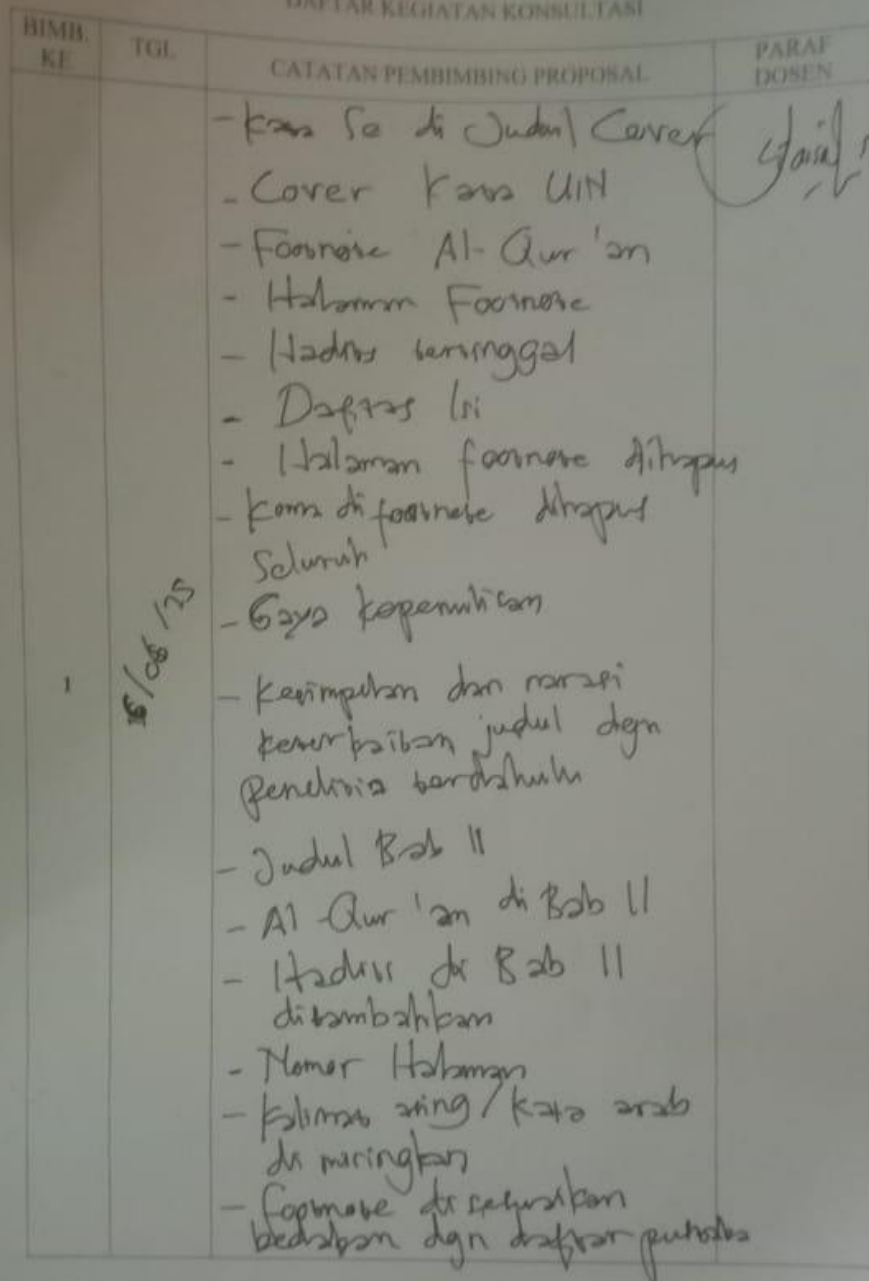 DAFTAR KEGIATAN KONSULTASI
BIMB. KE
TGL
CATATAN PEMBIMBING PROPOSAL
PARAF DOSEN
1
/08/25
- Kata Se di Judul Cover
- Cover Kata UIN
- Footnote Al-Qur'an
- Halaman Footnote
- Hadits tertinggal
- Daftar Isi
- Halaman footnote dihapus
- Koma di footnote dihapus
seluruh
- Gaya kepemilikan
- Kesimpulan dan narasi
keterkaitan judul dgn
penelitia terdahulu
- Judul Bab II
- Al-Qur'an di Bab II
- Hadits di Bab II
ditambahkan
- Nomor Halaman
- Kalimat asing/kata arab
di miringkan
- footnote di sesuaikan
bedakan dgn daftar pustaka